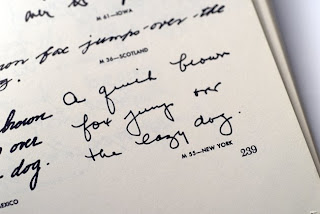 over
M 61—IOWA
own fox jumps-over-the
g.
M 36—SCOTLAND
brown
over
dog.
EXICO
A quick brown
fox jump over
the lazy dog.
M 55—NEW YORK
239